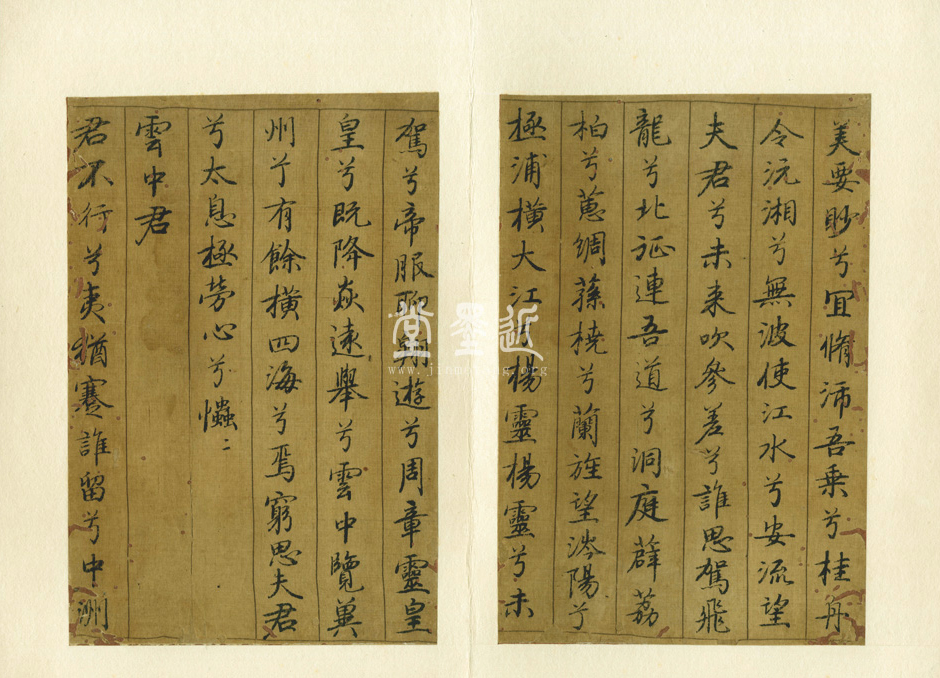 美要眇兮宜脩沛吾乗兮桂舟
令沅湘兮無波使江水兮安流望
夫君兮未来吹參差兮誰思駕飛
龍兮北征連吾道兮洞庭薜荔
柏兮蕙綢蓀橈兮蘭旌望涔陽兮
極浦橫大江兮楊靈楊靈兮未
駕兮帝服聊翱遊兮周章靈皇
皇兮既降猋遠舉兮雲中覽冀
州兮有餘橫四海兮焉窮思夫君
兮太息極勞心兮
雲中君
君不行兮夷猶蹇誰留兮中洲
近墨堂
www.jinmotang.org